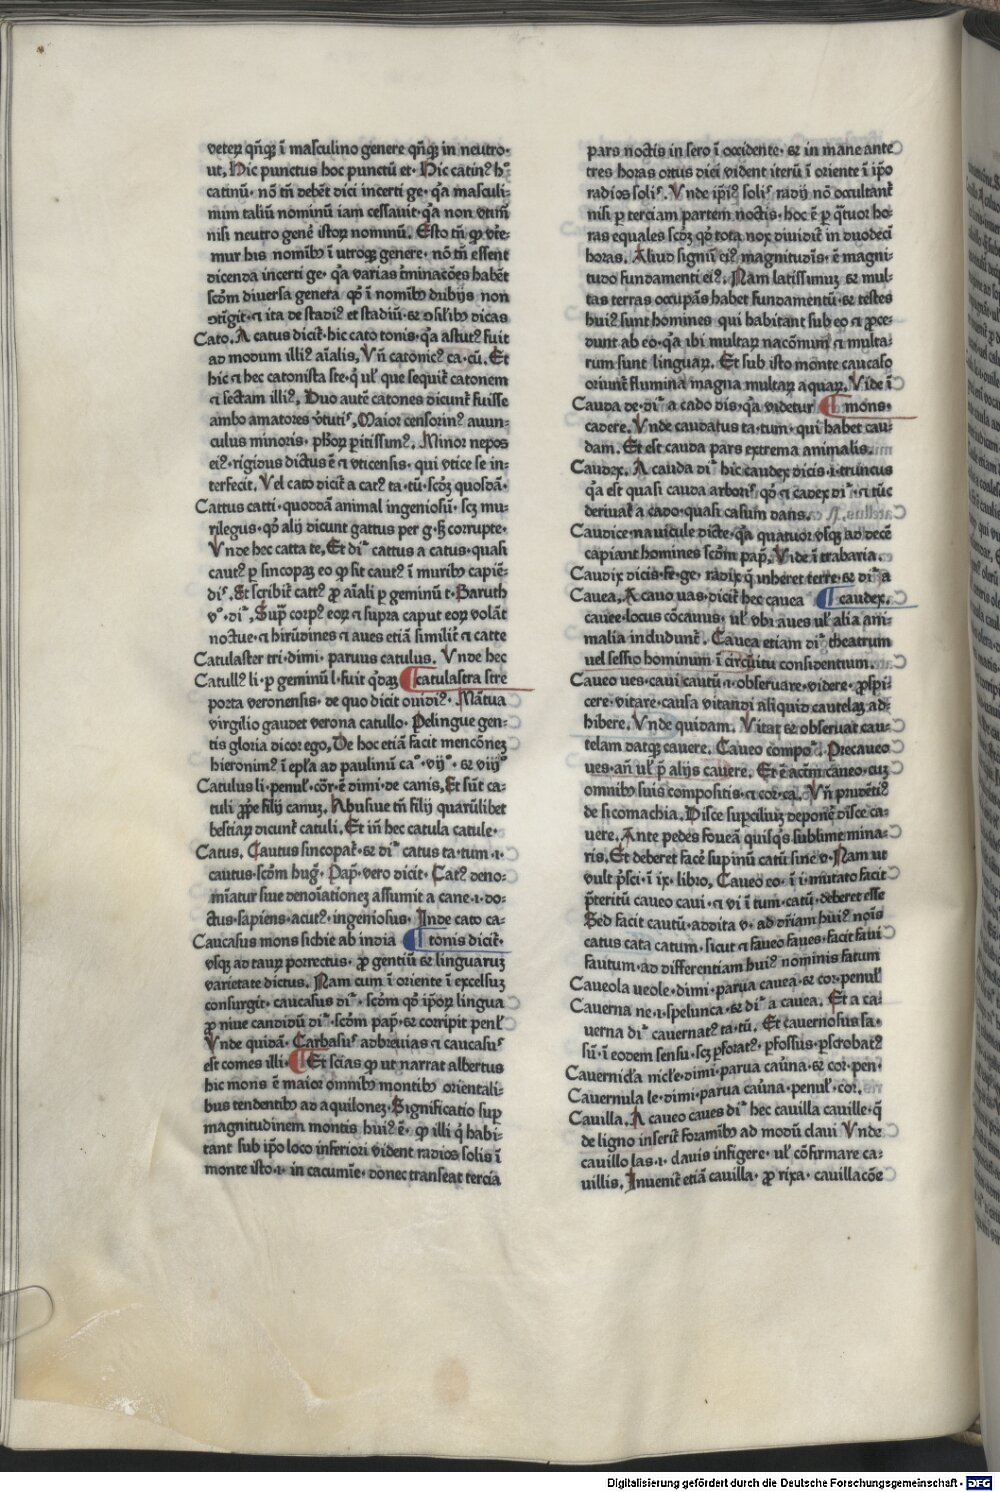 veteꝝ qn̄qꝫ ī maſculino genere qn̄qꝫ in neutro·
ut, Hic punctus hoc punctū et· Hic catinꝰ h̊
catinū· nō tn̄ debēt dici incerti ge· qꝛ maſculi⸗
num taliū nominū iam ceſſauit· qꝛ non vtim̄
niſi neutro genē iſtoꝝ nominū. Eſto tn̄ ꝙ vtē⸗
mur his nomībꝫ ī utroqꝫ genere· nō tn̄ eſſent
dicenda incerti ge· qꝛ varias t̄minacōes habēt
ſcd̄m diuerſa genera qd̓ ī nomībꝫ dubijs non
ꝯtīgit· ⁊ ita de ſtadiꝰ et ſtadiū· ⁊ ꝯſilībꝫ dicas
Cato. A catus dicit᷑· hic cato tonis· qꝛ aſtutꝰ fuit
ad modum illiꝰ aīalis, Vn̄ catonicꝰ ca· cū. Et
hic ⁊ hec catoniſta ſte· q̄ ul̓ que ſequit᷑ catonem
⁊ ſectam illiꝰ. Duo autē catones dicunt᷑ fuiſſe
ambo amatores v̓tutiſ. Maior cenſorinꝰ auun⸗
culus minoris· pl̓oꝝ ꝑitiſſimꝰ. Minor nepos
eiꝰ· rigidus dictus ē ⁊ vticenſis· qui vtice ſe in⸗
terfecit. Vel cato dicit᷑ a catꝰ ta· tū· ſcd̓ꝫ quoſdā·
Cattus catti· quoddā animal ingenioſū· ſcꝫ mu⸗
rilegus· qd̓ alij dicunt gattus per g· ſꝫ corrupte·
Vnde hec catta te, Et dꝛ̄ cattus a catus· quaſi
cautꝰ ꝑ ſincopaꝫ eo ꝙ ſit cautꝰ ī muribꝫ capiē⸗
diſ. Et ſcribit᷑ cattꝰ ꝓ aīali ꝑ geminū t· Baruth
vͦ· dꝛ̄. Suꝑ corpꝰ eoꝝ ⁊ ſupra caput eoꝝ volāt
noctue· ⁊ hirūdines ⁊ aues etiā ſimilit᷑ ⁊ catte
Catulaſter tri· dimi· paruus catulus. Vnde hec
Catullꝰ li· ꝑ geminū l· fuit qd̓aꝫ ¶catulaſtra ſtre
poeta veronenſis· de quo dicit ouidiꝰ. Mātua
virgilio gaudet verona catullo· Pelingue gen⸗
tis gloria dicor ego, De hoc etiā facit mencōneꝫ
hieronimꝰ ī epl̓a ad paulinū caͦ· vijͦ· ⁊ viijͦ
Catulus li· penul̓· cōr· ē dimi· de canis, Et ſūt ca⸗
tuli ꝓpe filij canuꝫ, Abuſiue tn̄ filij quarūlibet
beſtiaꝝ dicunt᷑ catuli. Et in̄ hec catula catule·
Catus. Cautus ſincopat᷑· ⁊ dꝛ̄ catus ta· tum ·i·
cautus· ſcd̄m hug̓. Pap̄· vero dicit. Catꝰ deno⸗
mīatur ſiue denoīationeꝫ aſſumit a cane ·i· do⸗
ctus· ſapiens· acutꝰ· ingenioſus. Inde cato ca⸗
Caucaſus mons ſichie ab india ¶ tonis dicit᷑·
vſqꝫ ad tauꝝ porrectus· ꝓ gentiū ⁊ linguaruꝫ
varietate dictus. Nam cum ī oriente ī excelſuꝫ
conſurgit· caucaſus dꝛ̄· ſcd̓m qd̓ ip̄oꝝ lingua
ꝓ niue candidū dꝛ̄· ſcd̓m pap̄· ⁊ corripit penl̓
Vnde quidā. Carbaſuſ adbreuias ⁊ caucaſuſ
eſt comes illi· ¶ Et ſcias ꝙ ut narrat albertus
hic mons ē maior omnibꝫ montibꝫ orientali⸗
bus tendentibꝫ ad aquiloneꝫ· Significatio ſuꝑ
magnitudinem montis huiꝰ ē· ꝙ illi q̄ habi⸗
tant ſub ip̄o loco inferiori vident radios ſolis ī
monte iſto ·i· in cacumīe· donec tranſeat tercia
pars noctis in ſero ī occidente· ⁊ in mane ante
tres horas ortus diei vident iterū ī oriente ī ip̄o
radios ſoliſ. Vnde ip̄iꝰ ſoliſ radij nō occultant᷑
niſi ꝑ terciam partem noctis· hoc ē ꝑ qͣtuor ho⸗
ras equales ſcd̓ꝫ qd̓ tota nox diuidit᷑ in duodecī
horas. Aliud ſignū eiꝰ magnitudīs· ē magni⸗
tudo fundamenti eiꝰ. Nam latiſſimuꝫ ⁊ mul⸗
tas terras occupās habet fundamentū· ⁊ teſtes
huiꝰ ſunt homines qui habitant ſub eo ⁊ ꝓce⸗
dunt ab eo· qꝛ ibi multaꝝ nacōnum ⁊ multa⸗
rum ſunt linguaꝝ. Et ſub iſto monte caucaſo
oriunt᷑ flumina magna multaꝝ aquaꝝ. Vide ī
Cauda de· dꝛ̄ a cado dis· qꝛ videtur ¶ mons·
cadere. Vnde caudatus ta· tum· qui habet cau⸗
dam. Et eſt cauda pars extrema animalis.
Caudex. A cauda dꝛ̄ hic caudex dicis ·i· truncus
qꝛ eſt quaſi cauda arboriſ· qd̓ ⁊ cadex dꝛ̄· ⁊ tūc
deriuat᷑ a cado· quaſi caſum dans.
Caudice· nauicule dicte· qꝛ quatuor vſqꝫ ad decē
capiant homines ſcd̓m pap̄. Vide ī trabaria.
Caudix dicis· fe· ge· radix q̄ inheret terre· ⁊ dꝛ̄ a
Cauea. A cauo uas· dicit᷑ hec cauea ¶ caudex.
cauee· locus cōcauus· ul̓ vbi aues ul̓ alia ani⸗
malia indudunt᷑. Cauea etiam dꝛ̄ theatrum
uel ſeſſio hominum ī circūitu conſidentium.
Caueo ues· caui cautū ·i· obſeruare· videre· ꝓſpi⸗
cere· vitare· cauſa vitandi aliquid cautelaꝫ ad⸗
hibere. Vnde quidam. Vitat ⁊ obſeruat cau⸗
telam datqꝫ cauere. Caueo compoͫ. Precaueo
ues· an̄ ul̓ p̄ alijs cauere. Et ē actm̄ caueo· cuꝫ
omnibꝫ ſuis compoſitis· ⁊ cor· ca. Vn̄ prudētiꝰ
de ſicomachia. Diſce ſuꝑciliuꝫ deponē diſce ca⸗
uere. Ante pedes foueā quiſqꝫ ſublime mina⸗
ris. Et deberet facē ſupinū catū ſine v· Nam ut
vult p̄ſci· ī ix· libro, Caueo eo· ī i· mutato facit
p̄teritū caueo caui· ⁊ vi ī tum· catū· deberet eſſe
Sed facit cautū· addita v· ad dr̄iam huiꝰ noīs
catus cata catum· ſicut ⁊ faueo faues· facit faui
fautum· ad differentiam huiꝰ nominis fatum
Caueola ueole· dimi· parua cauea· ⁊ cor· penul̓
Cauerna ne ·i· ſpelunca· ⁊ dꝛ̄ a cauea. Et a ca⸗
uerna dꝛ̄ cauernatꝰ ta· tū, Et cauernoſus ſa·
ſū· ī eodem ſenſu· ſcꝫ ꝑforatꝰ· ꝑfoſſus· ꝑſcrobatꝰ
Cauernicl̓a nicl̓e· dimi· parua cau̓na· ⁊ cor· pen·
Cauernula le· dimi· parua cau̓na· penul̓· cor.
Cauilla. A caueo caues dꝛ̄ hec cauilla cauille· q̄
de ligno inſerit᷑ foramībꝫ ad modū claui Vnde
cauillo las ·i· clauis infigere· ul̓ cōfirmare ca⸗
uillis. Inuenit᷑ etiā cauilla· ꝓ rixa· cauillacōe
Digitalisierung gefördert durch die Deutsche Forschungsgemeinschaft - DFG